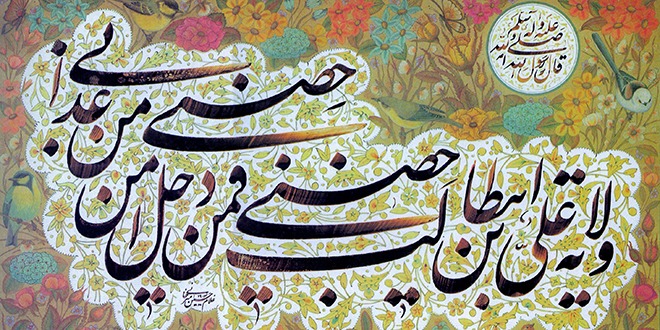 قال رسول الله صلی الله علیه وآله وسلم
ولایة علیّ بن ابیطالب حِصنی فمن دخل حِصنی امن من عذابی